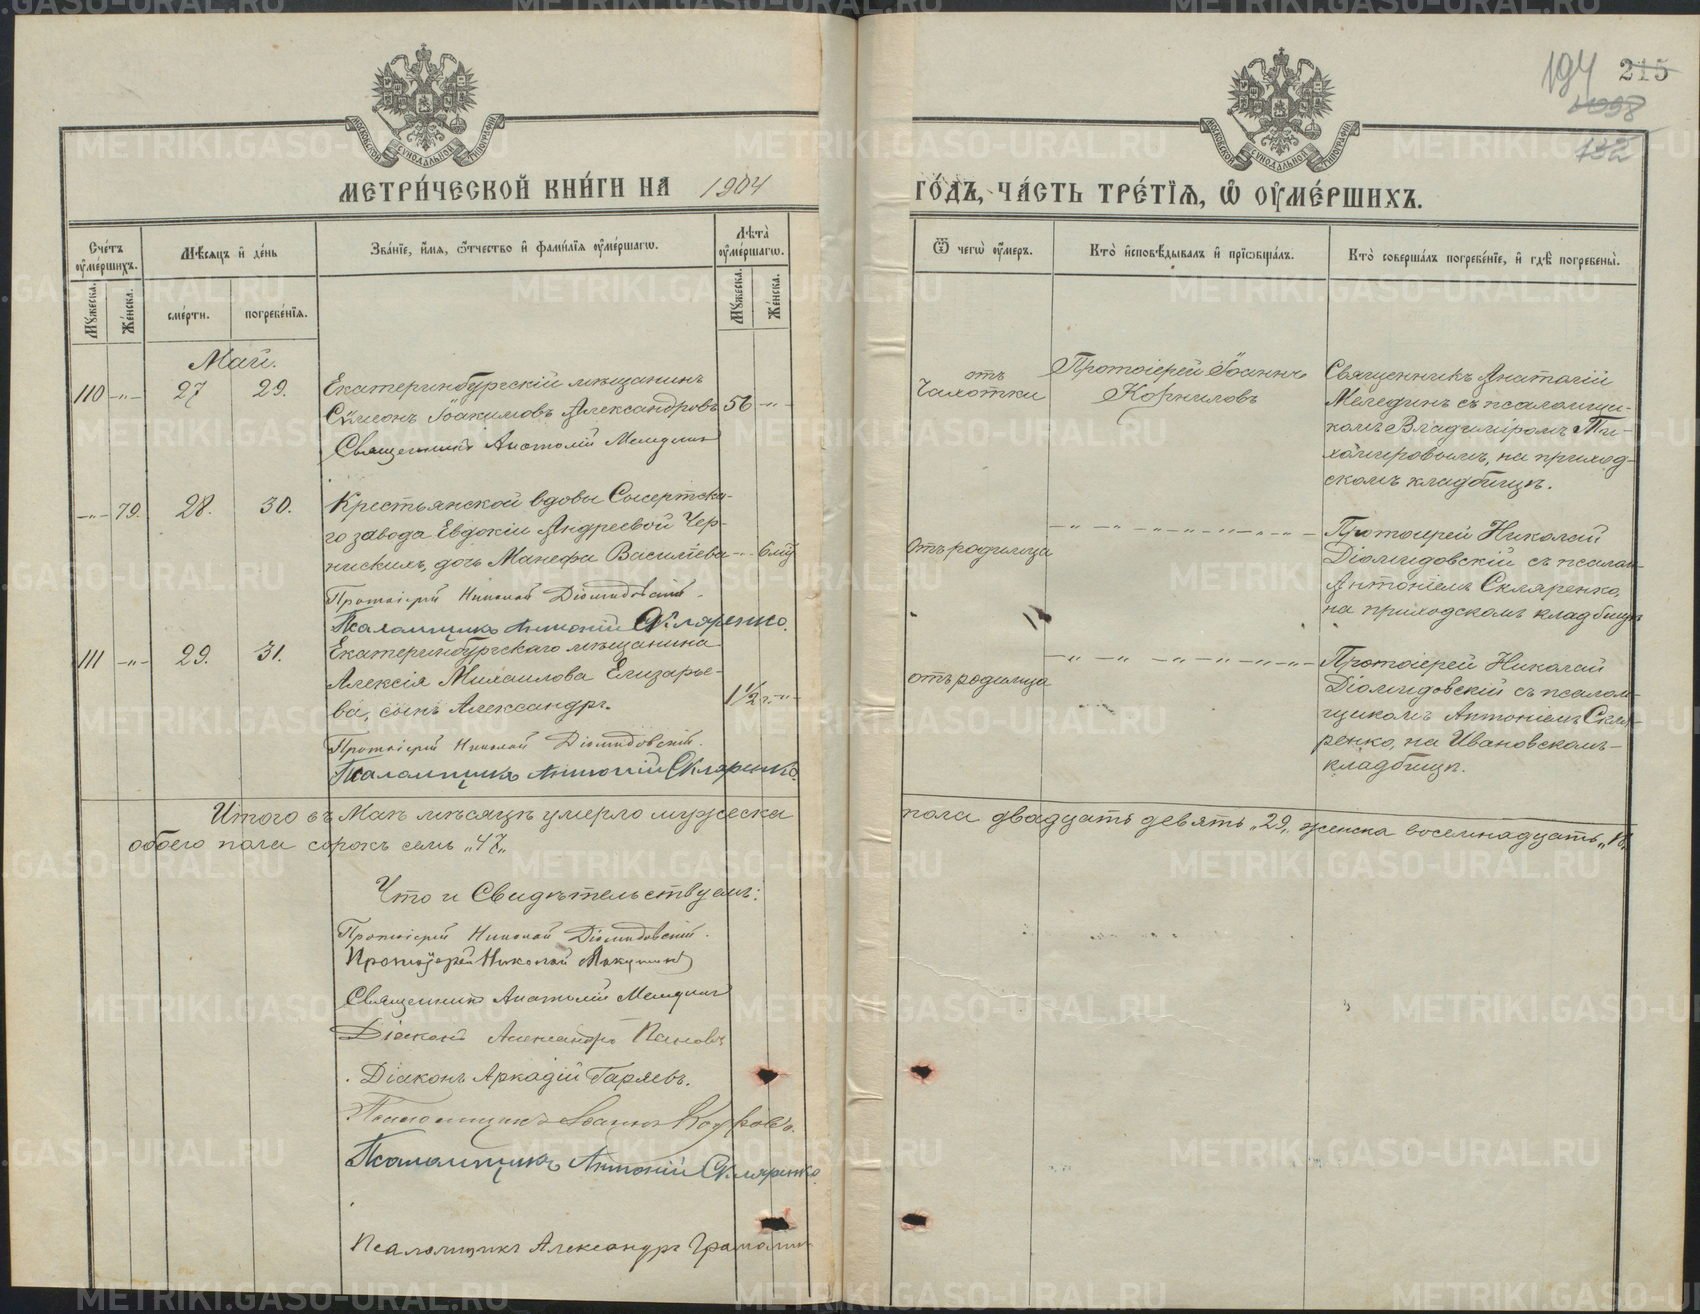 194 215
1098
132
МОСКОВСКОЙ СѴНОДАЛЬНОЙ ТИПОГРАФІИ
МОСКОВСКОЙ СѴНОДАЛЬНОЙ ТИПОГРАФІИ
МЕТРИ́ЧЕСКОЙ КНИ́ГИ НА 1904
ГО́ДЪ, ЧА́СТЬ ТРЕ́ТІѦ, Ѡ҆ ОУ҆МЕ́РШИХЪ.
Сче́тъ оу҆ме́ршихъ.
Мѣ́сяцъ и҆ де́нь
Зва́ніе, и҆́мя, ѻ҆́тчество и҆ фами́лія оу҆ме́ршагѡ.
Лѣ́та оу҆ме́ршагѡ.
Ѿ чегѡ̀ оу҆́меръ.
Кто̀ и҆сповѣ́дывалъ и҆ прїѡбща́лъ.
Кто̀ соверша́лъ погребе́ніе, и҆ гдѣ̀ погребены̀.
Мꙋ́жеска.
Же́нска.
сме́рти.
погребе́нія.
Мꙋ́жеска.
Же́нска.
Май.
110 -"- 27 29. Екатеринбургскій мѣщанинъ
Сѵмеонъ Іоакимовъ Александровъ 56 -"-
Священникъ Анатолій Мелединъ
отъ
чахотки
Протоіерей Іоаннъ
Корниловъ
Священникъ Анатолій
Мелединъ съ псаломщи-
комъ Владиміромъ Ти-
хомировымъ, на приход-
скомъ кладбищѣ.
-"- 79. 28. 30. Крестьянской вдовы Сысертска-
го завода Евдокіи Андреевой Чер-
нискихъ, дочь Манефа Васильева -"- 6 мѣ
Протоіерей Николай Діомидовскій.
Псаломщикъ Антоній Скляренко.
Отъ родимца
-"-"-"-"-"-"-
Протоіерей Николай
Діомидовскій съ псалом
Антоніемъ Скляренко,
на приходскомъ кладбищѣ
111 -"- 29. 31. Екатеринбургскаго мѣщанина
Алексія Михаилова Елизарье-
ва, сынъ Александръ. 1 1/2 г. -"-
Протоіерей Николай Діомидовскій.
Псаломщикъ Антоній Скляренко.
отъ родимца
-"-"-"-"-"-"-
Протоіерей Николай
Діомидовскій съ псалом-
щикомъ Антоніемъ Скля-
ренко, на Ивановскомъ
кладбищѣ.
Итого въ Маѣ мѣсяцѣ умерло мужеска
пола двадцать девять „29„ женска восемнадцать „18„
обоего пола сорокъ семь „47„
Что и Свидѣтельствуемъ:
Протоіерей Николай Діомидовскій.
Протоіерей Николай
Священникъ Анатолій Мелединъ
Діаконъ Александръ Пановъ
Діаконъ Аркадій Гаряевъ.
Псаломщикъ Іоаннъ
Псаломщикъ Антоній Скляренко.
Псаломщикъ Александръ
METRIKI.GASO-URAL.RU